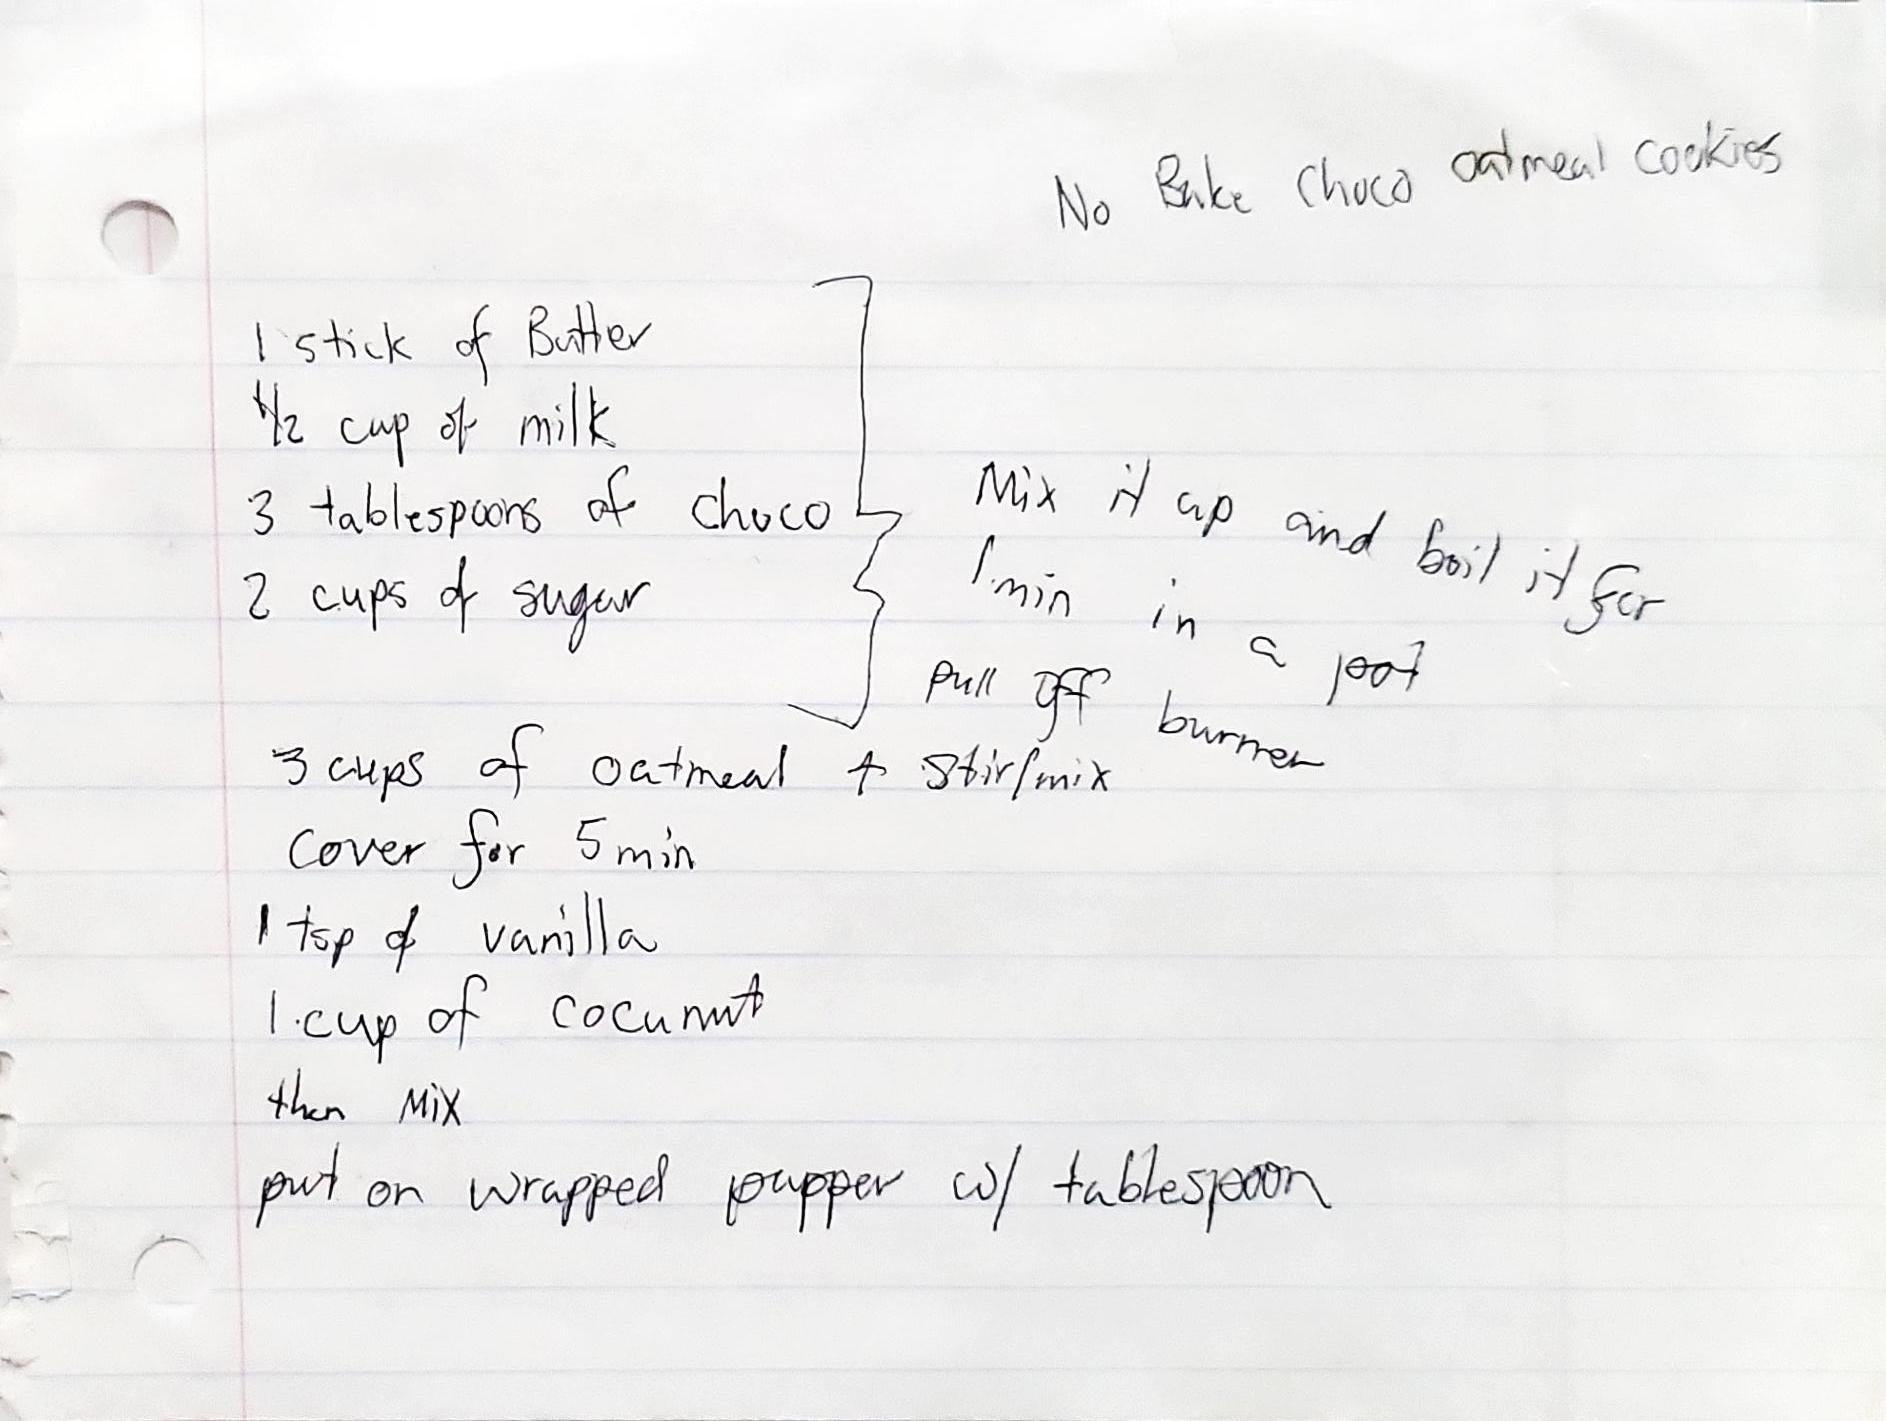 No Bake Choco oatmeal cookies
1 stick of Butter
1/2 cup of milk
3 tablespoons of choco
2 cups of sugar
Mix it up and boil it for
1 min in a pot
pull off burner
3 cups of oatmeal + stir/mix
cover for 5 min
1 tsp of vanilla
1 cup of cocunut
then Mix
put on wrapped papper w/ tablespoon